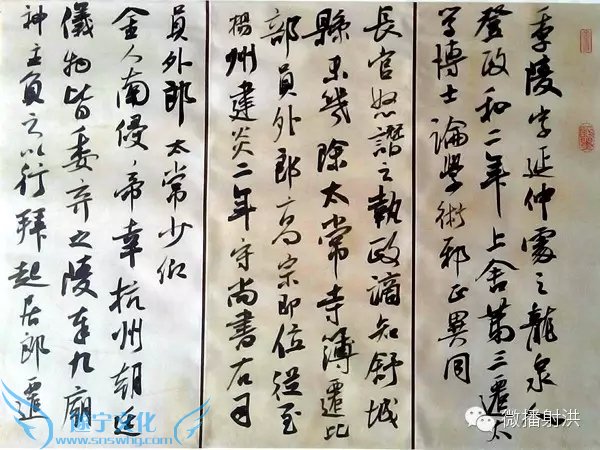 季陵字延仲處之龍泉人
登政和二年上舍第三遷太
学博士論學術邪正異同
長官怒譖之執政謫知舒城
縣未幾除太常寺簿遷比
部員外郎高宗即位從至
楊州建炎二年守尚書右司
員外郎太常少卿
金人南侵帝幸杭州朝廷
儀物皆委弃之陵奉九廟
神主負之以行拜起居郎遷
遂宁文化
www.snswhg.com
微播射洪